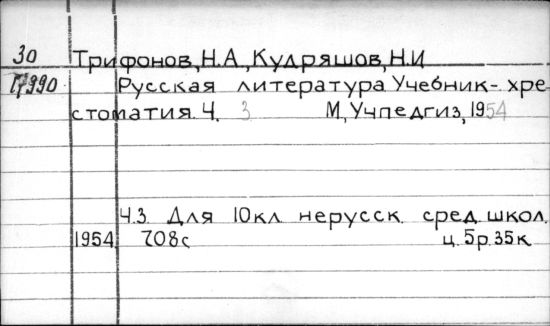 30 Трифонов,Н.А.,Кудряшов,Н.И
17990 Русская литература.Учебник-хре-
стоматия.Ч. 3 М,Учпедгиз,1954
Ч.3 Для 10кл нерусск. сред.школ.
1954 708с ц.5р.35к